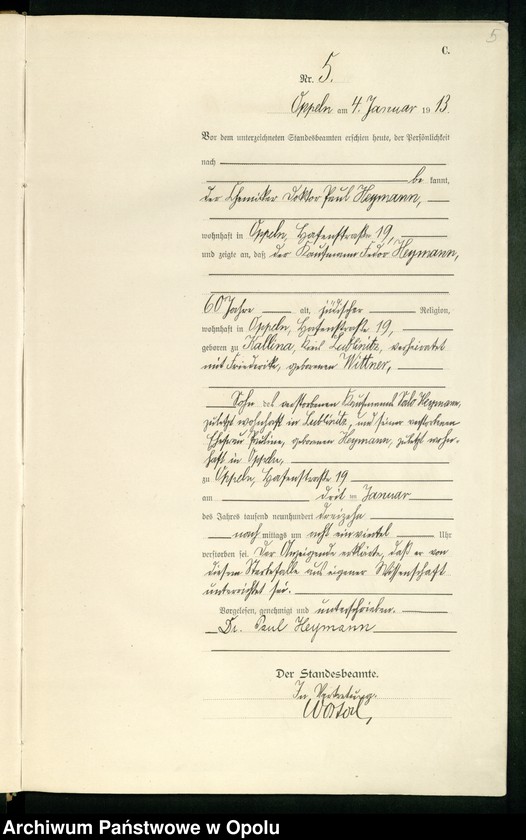 5
C.
Nr. 5.
Oppeln am 4. Januar 1913.
Vor dem unterzeichneten Standesbeamten erschien heute, der Persönlichkeit
nach
be kannt,
der Chemiker Doktor Paul Heymann,
wohnhaft in Oppeln, Hafenstraße 19,
und zeigte an, daß der Kaufmann Fedor Heymann,
60 Jahre alt, jüdischer Religion,
wohnhaft in Oppeln, Hafenstraße 19,
geboren zu Kallina, Kreis Lublinitz, verheiratet
mit Friederike, geborenen Wittner,
Sohn des verstorbenen Kaufmanns Salo Heymann,
zuletzt wohnhaft in Lublinitz, und seiner verstorbenen
Ehefrau Pauline, geborenen Heymann, zuletzt wohn-
haft in Oppeln,
zu Oppeln, Hafenstraße 19
am drit en Januar
des Jahres tausend neunhundert dreizehn
nach mittags um einviertel Uhr
verstorben sei. Der Anzeigende erklärte, daß er von
diesem Sterbefalle aus eigener Wissenschaft
unterrichtet sei.
Vorgelesen, genehmigt und unterschrieben.
Dr. Paul Heymann
Der Standesbeamte.
In Vertretung.
Archiwum Państwowe w Opolu